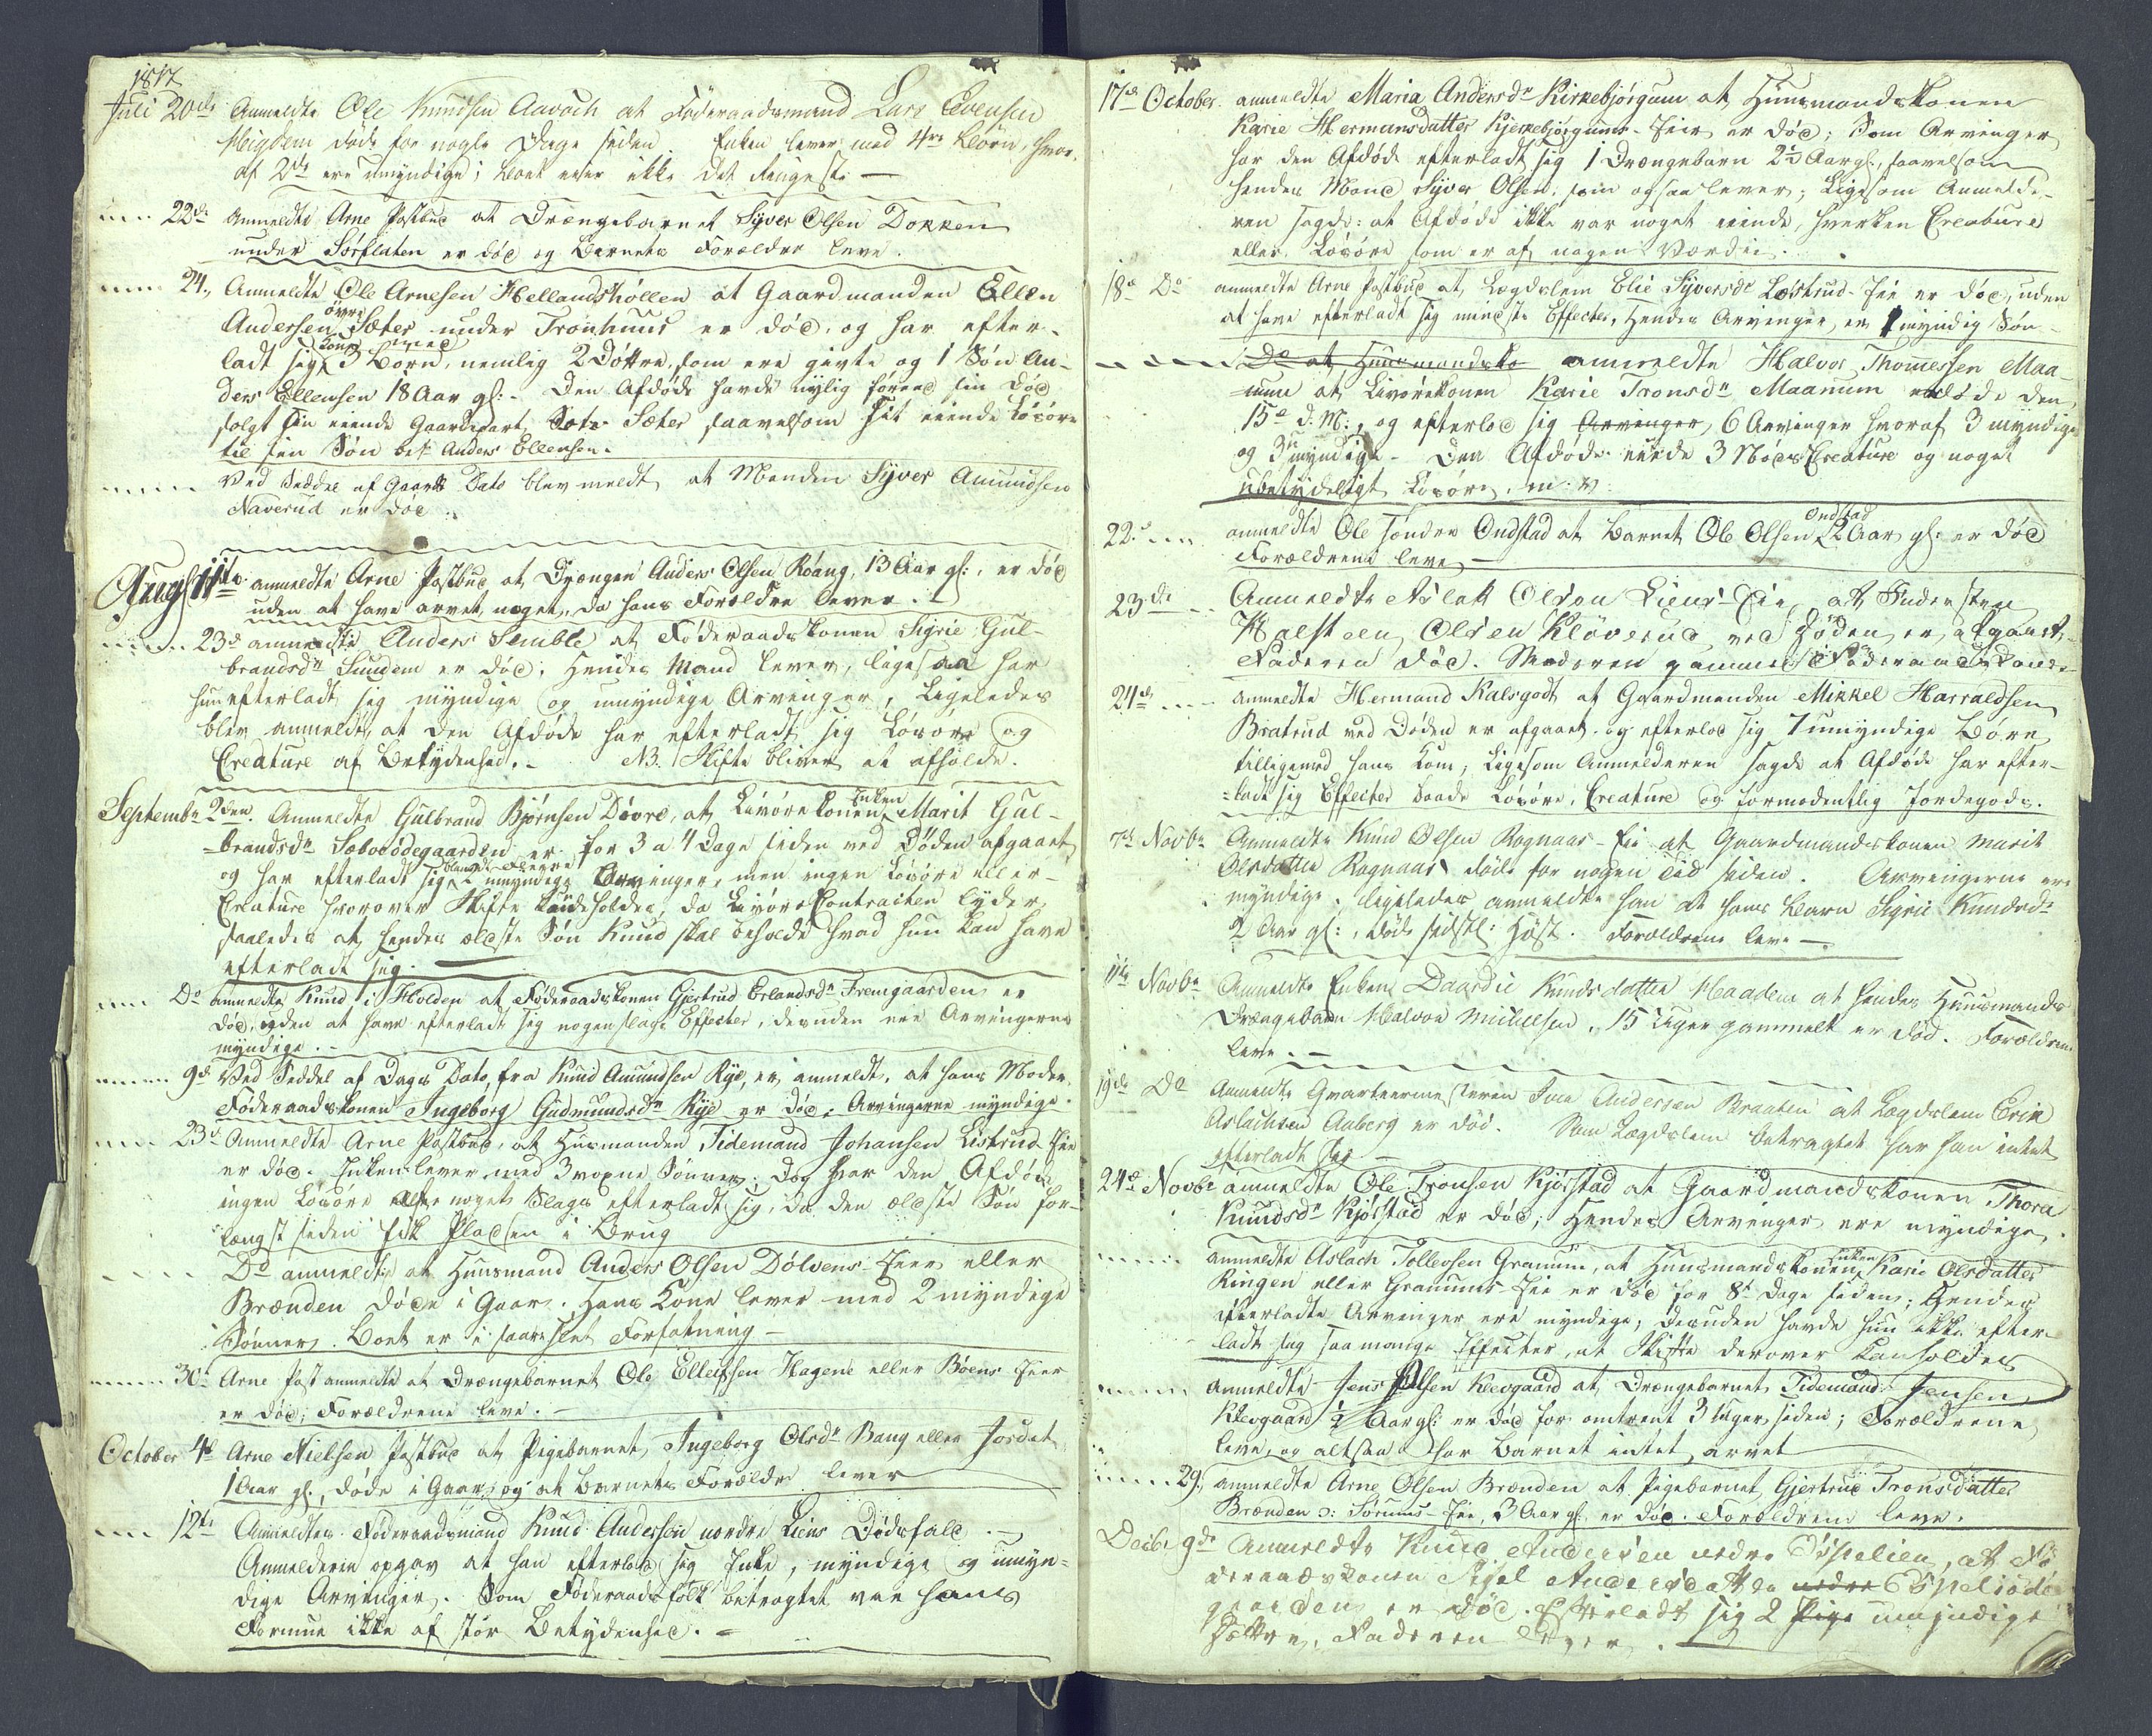 1817
Juli 20de Anmeldte Ole Knudsen Aavoch at Föderaadsmand Lars Evensen
døde for nogle Dage siden. Enken lever med 4re Börn, hvor-
af 2de ere umyndige; Boet eier ikke det Ringeste —
22de Anmeldte Arne Postbud at Drængebarnet Syver Olsen Dokken
under Sörflaten er död og Barnets Forældre leve.
24. Anmeldte Ole Arnesen Hellandshöllen at Gaardmanden Ellen
Andersen övre Sæter under Tronhuus er död, og har efter-
ladt sig Kone med 3 Börn, nemlig 2 Döttre, som ere givte og 1 Sön An-
ders Ellensen 18 Aar gl: - Den Afdöde havde nylig förend sin Död
solgt sin eiende Gaardpart Sæter saavelsom sit eiende Lösöre
til sin Sön bete Anders Ellensen.
Ved Seddel af Gaars Dato blev meldt at Manden Syver Amundsen
Naverud er död.
Augst 11te anmeldte Arne Postbud at Drængen Anders Olsen Röang, 13 Aar gl:, er död
uden at have arvet noget, da hans Forældre lever.
23d anmeldte Anders Semble at Föderaadskonen Sigrie Gul-
brandsdr Sundem er död. Hendes Mand lever, ligesaa har
hun efterladt sig myndige og umyndige Arvinger, Ligeledes
blev anmeldt, at den Afdöde har efterladt sig Lösöre og
Creature af Betydenhed. - NB. Skifte bliver at afholde.
Septembr 2den Anmeldte Gulbrand Björnsen Dövre, at Livörekonen Enken Marit Gul-
brandsdr Sæboödegaarden er for 3 a 4 Dage siden ved Döden afgaaet
og har efterladt sig blandt Flere 2 umyndige Arvinger, men ingen Lösöre eller
Creature hvorover Skifte kunde holdes, da Livöre Contracten lyder
saaledes at hendes ældste Sön Knud skal beholde hvad hun kan have
efterladt sig.
Do anmeldte Knud i Holden at Föderaadskonen Gjertrud Erlandsdr Fremgaarden er
död, uden at have efterladt sig nogenslags Effecter, desuden ere Arvingerne
myndige. -
9de Ved Seddel af Dags Dato, fra Knud Amundsen Rye, er anmeldt, at hans Moder,
Föderaadskonen Ingeborg Gudmundsdr Rye er död. Arvingerne myndige.
23de Anmeldte Arne Postbud, at Husmanden Tidemand Johansen Listrud-Eie
er död. Enken lever med 3 voxne Sönner; dog har den Afdöde
ingen Lösöre af noget Slags efterladt sig, da den ældste Sön for-
længst siden fik Pladsen i Brug
Do anmeldte at Huusmand Anders Olsen Dölvens-Eier eller
Brænden döde i Gaar. Hans Kone lever med 2 myndige
Sönner. Boet er i saare slet Forfatning —
30te Arne Post anmeldte at Drængebarnet Ole Ellefsen Hagene eller Böens Eier
er död; Forældrene leve. —
October 4de Arne Nielsen Postbud at Pigebarnet Ingeborg Olsdr Bang eller Jordet
1 Aar gl., döde i Gaar, og at Barnets Forældre lever
12te Anmeldtes Föderaadsmand Knud Andersön nordre Liens Dödsfald. —
Anmelderen opgav at han efterlod sig Enke, myndige og umyn-
dige Arvinger. Som Föderaadsfolk betragtet var hans
Formue ikke af stor Betydenhed. -
17de October anmeldte Maria Andersdr Kirkebjörgum at Huusmandskonen
Karie Hermansdatter Kjerkebjörgums-Eier er död; Som Arvinger
har den Afdöde efterladt sig 1 Drængebarn 2½ Aar gl:, saavelsom
hendes Mand Syver Olsen, som ogsaa lever; Ligesom Anmelde-
ren sagde: at Afdöde ikke var noget eiende, hverken Creature
eller Lösöre som er af nogen Værdie.
18de Do anmeldte Arne Postbud at Lægdslem Elie Syversdr Læstrud-Eie er död, uden
at have efterladt sig mindste Effecter, Hendes Arvinger, er 1 myndig Sön -
Do at Huusmandsko anmeldte Halvor Thomessen Maa-
num at Livörekonen Karie Tronsdr Maanum döde den
15de d: M:, og efterlod sig Arvinger, 6 Arvinger hvoraf 3 myndige
og 3 umyndige. - Den Afdöde eiede 3 Nöds Creature og noget
ubetydeligt Lösöre, m: v:
22de anmeldte Ole söndre Ondstad at Barnet Ole Olsen Ondstad 2 Aar gl: er död
Forældrene leve —
23de Anmeldte Aslak Olsen Liens-Eie, at Indersten
Halsteen Olsen Klöverud ved Döden er afgaaet.
Faderen död. Moderen gammel Föderaadskone.
24de anmeldte Hermand Kalsgodt at Gaardmanden Mikkel Harraldsen
Bratrud ved Döden er afgaaet, og efterlod sig 7 umyndige Börn
tilligemed hans Kone, Ligesom Anmelderen sagde at Afdöde har efter-
ladt sig Effecter baade Lösöre, Creature og formodentlig Jordegods.
7de Novbr Anmeldte Knud Olsen Rognaas-Eie at Gaardmandskonen Marit
Olsdatter Rognaas döde for nogen Tid siden. Arvingerne ere
myndige. ligeledes anmeldte han at hans Barn Sigrie Knudsdr
2 Aar gl:, döde sidstl: Höst. Forældrene leve —
11te Novbr Anmeldte Enken Daardie Knudsdatter Haadem at hendes Huusmands
Drængebarn Halvor Michelsen, 15 Uger gammelt er död. Forældrene
leve. —
19de Do Anmeldte Qvarteermesteren Iver Andersen Braaten at Lægdslem Erik
Aslachsen Aaberg er död. Som Lægdslem betragtet har han intet
efterladt sig —
24de Novbr anmeldte Ole Tronsen Kjörstad at Gaardmandskonen Thora
Knudsdr Kjörstad er död; Hendes Arvinger ere myndige.
anmeldte Aslach Tollevsen Granum, at Huusmandskonen Enken Karie Olsdatter
Ringen eller Granums-Eie er död for 8te Dage siden; Hendes
efterladte Arvinger ere myndige; desuden havde hun ikke efter-
ladt sig saa mange Effecter, at Skifte derover kan holdes
anmeldte Jens Olsen Klevgaard at Drængebarnet Tidemand Jensen
Klevgaard ½ Aar gl: er död for omtrent 3 Uger siden; Forældrene
leve, og altsaa har Barnet intet arvet
29. anmeldte Arne Olsen Brænden at Pigebarnet Gjertrud Tronsdatter
Brænden ɔ: Sörums-Eie, 3 Aar gl. er död. Forældrene leve.
Decbr 9de Anmeldte Knud Andersen nedre Espelien, at Fö-
deraadskonen Sigel Andersdatter nedre Espeliöde-
gaarden er död. Efterladt sig 2 Pige umyndige
Döttre, Faderen lever.